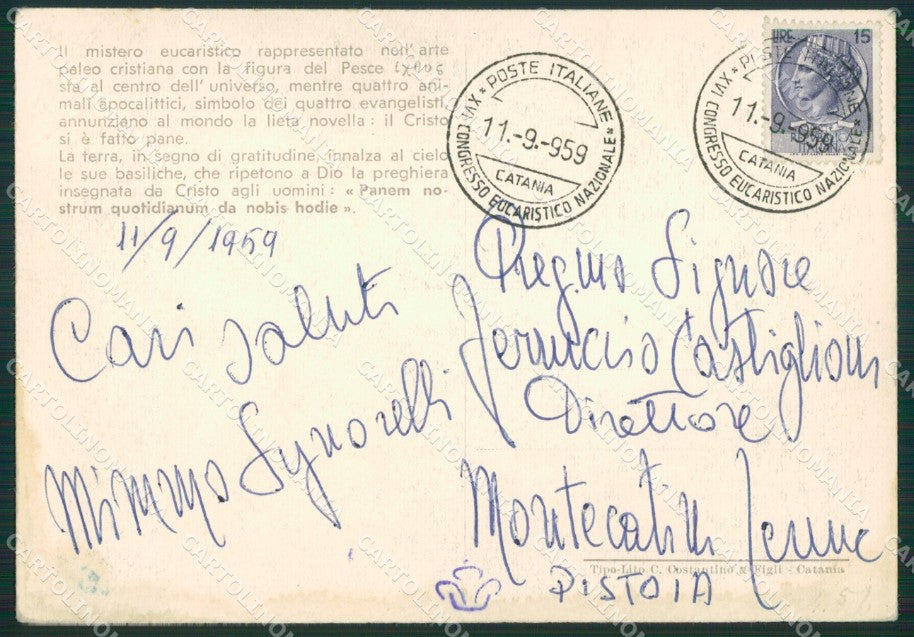 Il mistero eucaristico rappresentato nell'arte
paleo cristiana con la figura del Pesce ιχθυς
sta al centro dell'universo, mentre quattro ani-
mali apocalittici, simbolo dei quattro evangelisti,
annunziano al mondo la lieta novella: il Cristo
si è fatto pane.
La terra, in segno di gratitudine, innalza al cielo
le sue basiliche, che ripetono a Dio la preghiera
insegnata da Cristo agli uomini: « Panem no-
strum quotidianum da nobis hodie ».
11/9/1959
Cari saluti
Mimmo Signorelli
POSTE ITALIANE
11.-9.-959
CATANIA
XVI CONGRESSO EUCARISTICO NAZIONALE
LIRE 15
POSTE ITALIANE
11.-9.-959
CATANIA
XVI CONGRESSO EUCARISTICO NAZIONALE
Preg.mo Signore
Ferruccio Castiglioni
Direttore
Montecatini Terme
Tipo-Lito C. Costantino & Figli - Catania
PISTOIA
CARTOLINOMANIA